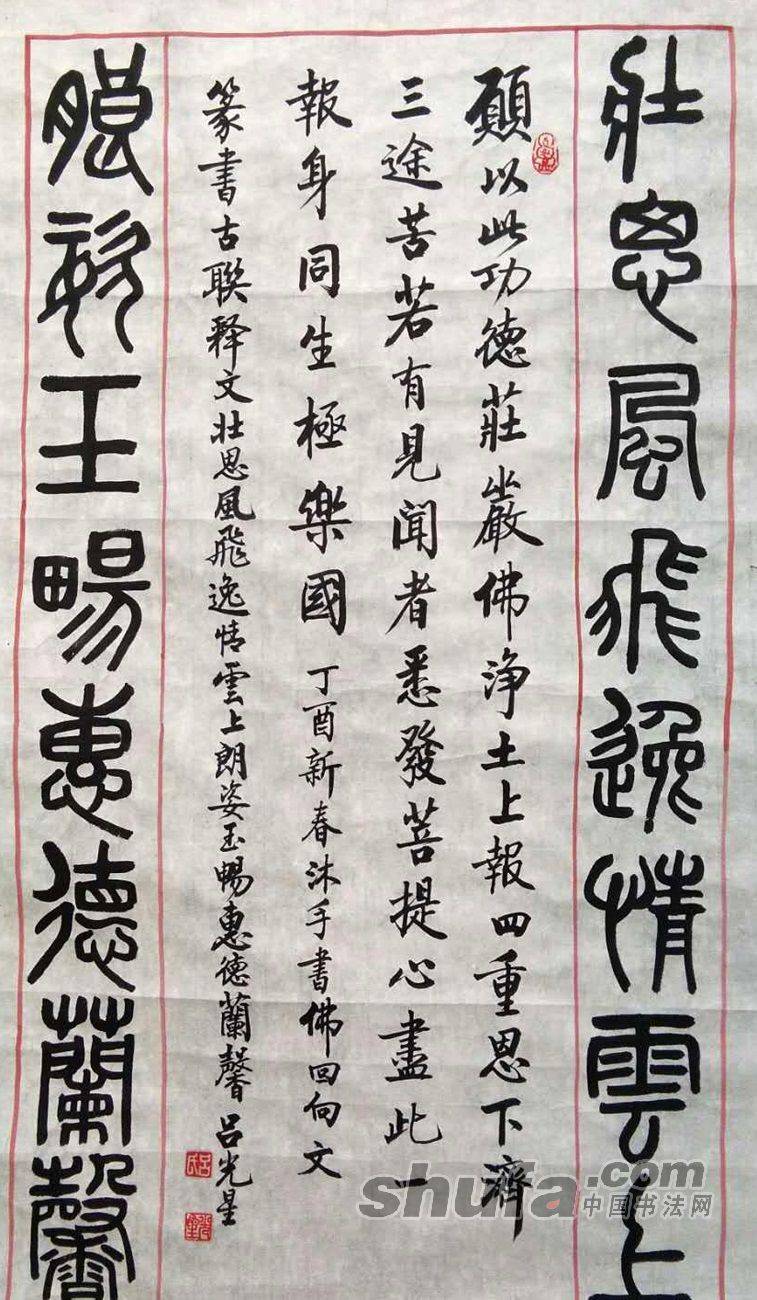 壯思風飛逸情雲上
願以此功德莊嚴佛浄土上報四重恩下濟
三途苦若有見聞者悉發菩提心盡此一
報身同生極樂國丁酉新春沐手書佛回向文
篆書古聯释文壮思風飛逸情雲上朗姿玉暢惠德蘭馨吕光星
朗姿玉暢惠德蘭馨
shufa.com
中国书法网